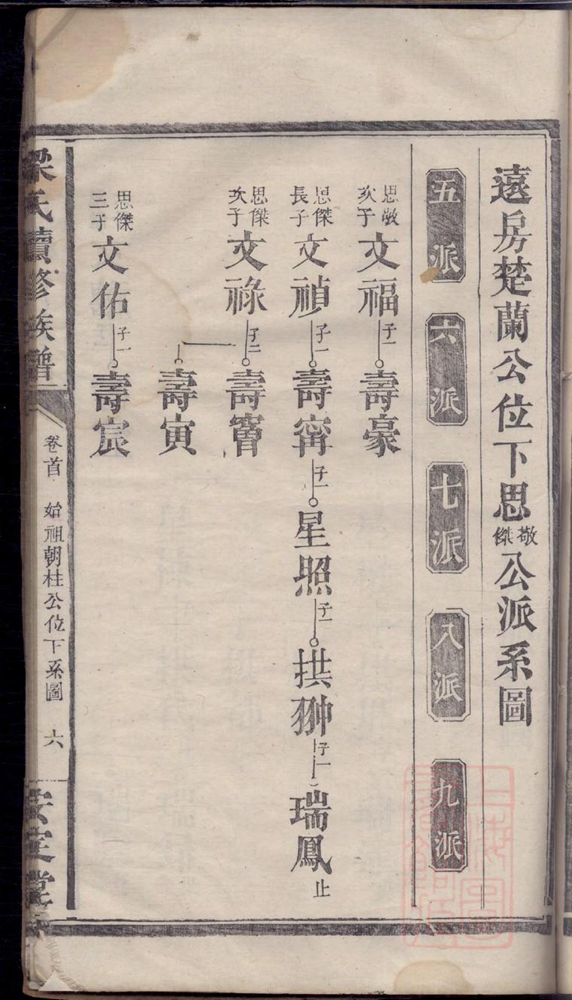 遠房楚蘭公位下思敬傑公派系圖
五派 六派 七派 八派 九派
思敬次子文福 子一 壽豪
思傑長子文禎 子一 壽寗 子一 星照 子一 拱翀 子一 瑞鳳 止
思傑次子文祿 子二 壽寗
壽寅
思傑三子文佑 子一 壽宸
梁氏續修族譜
卷首 始祖朝柱公位下系圖 六
安定堂